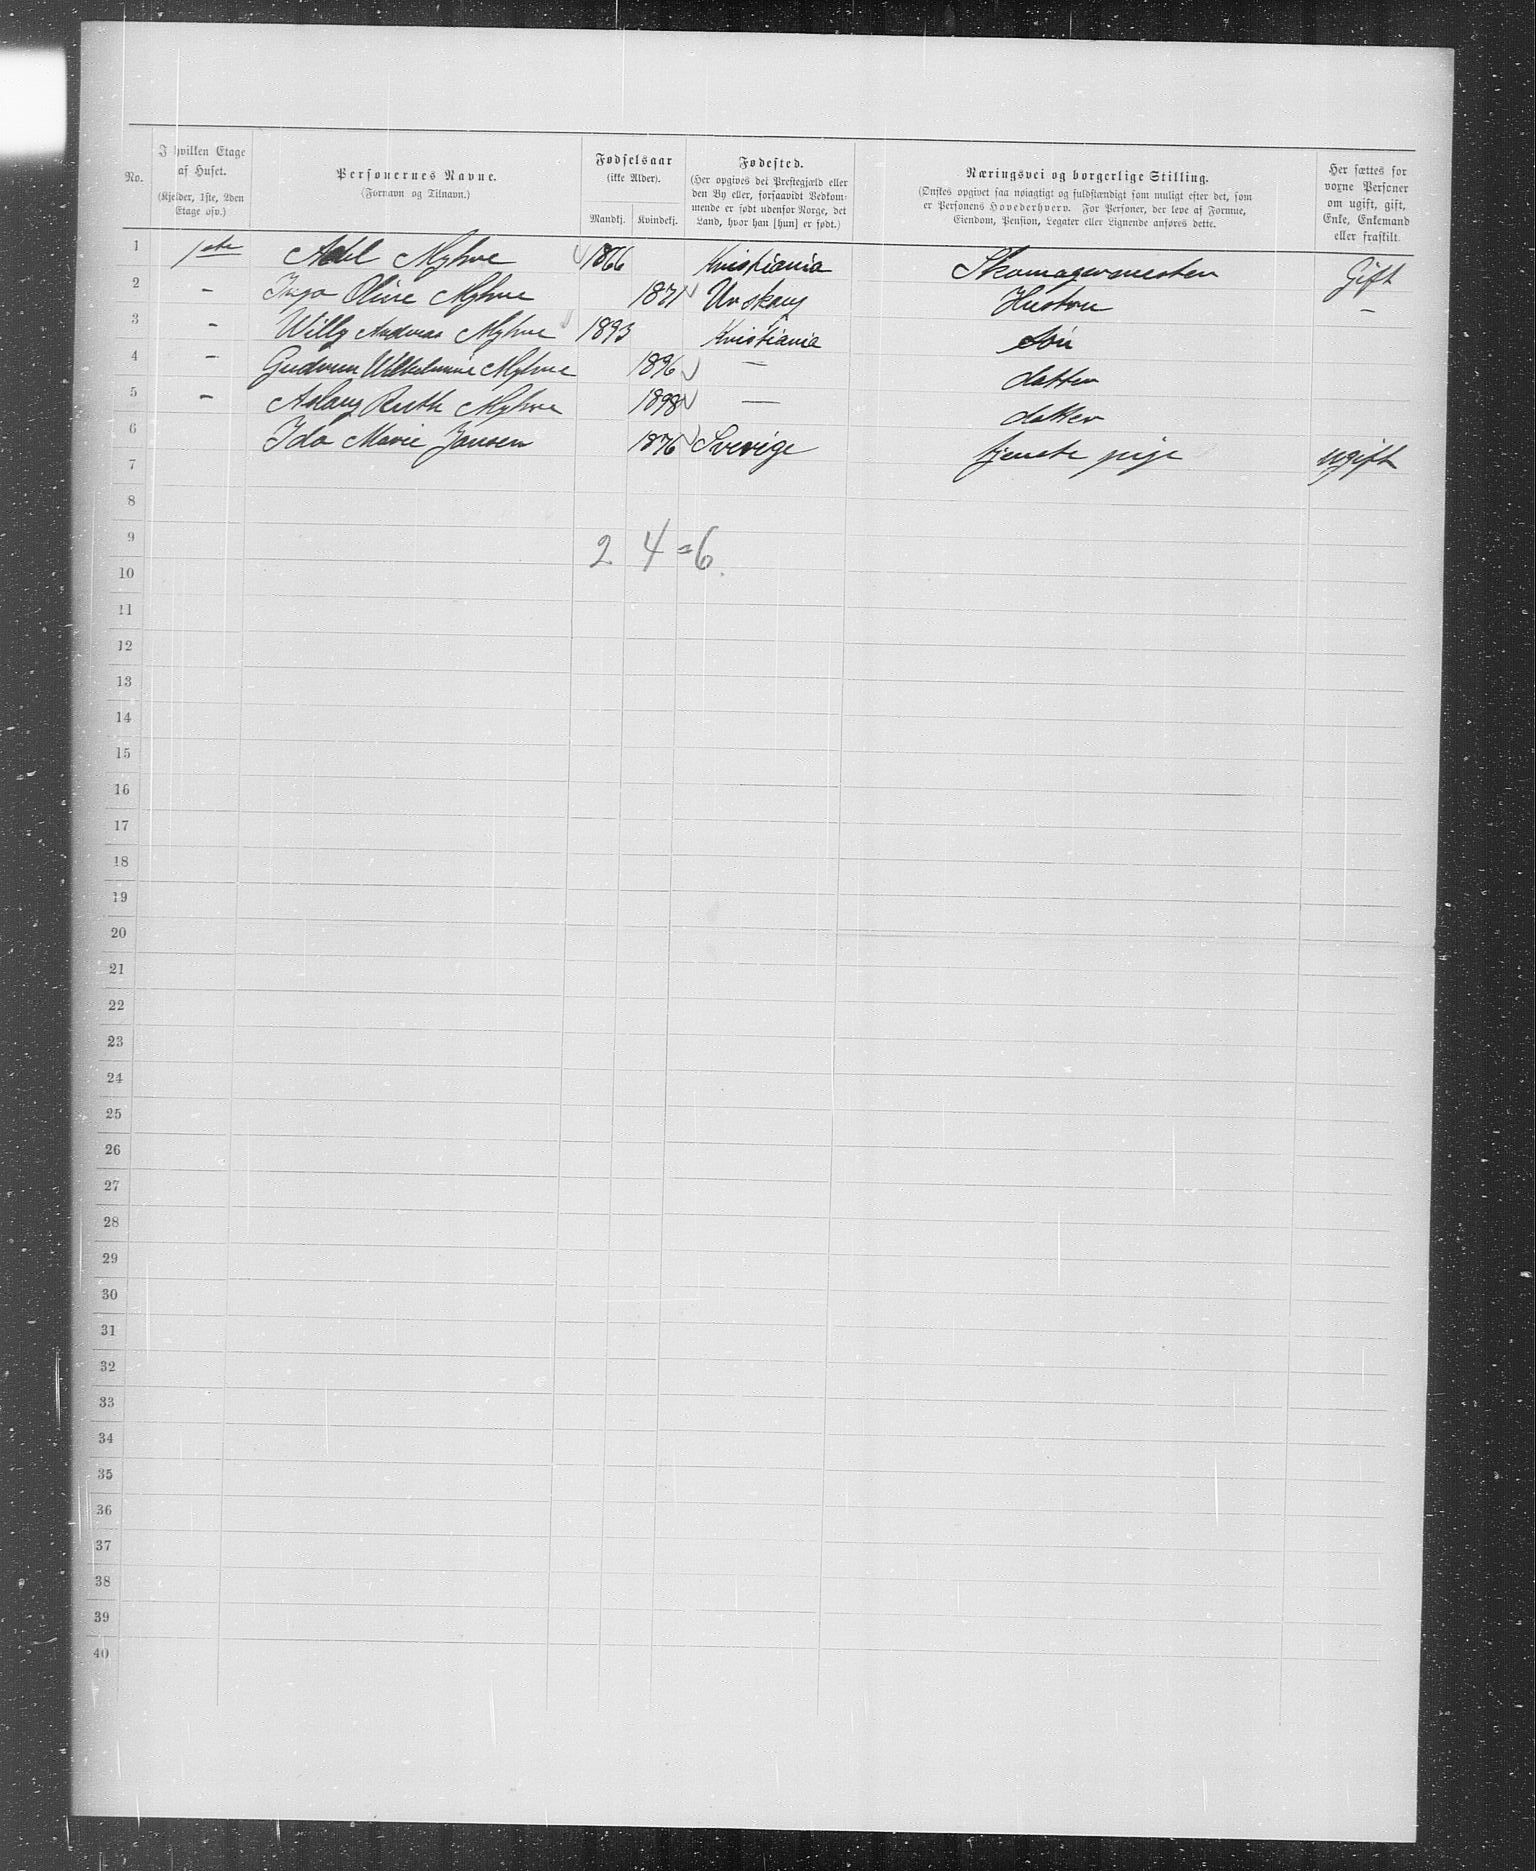 No. I hvilken Etage af Huset. (Kjelder, 1ste, 2den Etage osv.) Personernes Navne. (Fornavn og Tilnavn.) Fødselsaar (ikke Alder). Mandkj. Kvindekj. Fødested. (Her opgives det Prestegjæld eller den By eller, forsaavidt Vedkommende er født udenfor Norge, det Land, hvor han [hun] er født.) Næringsvei og borgerlige Stilling. (Ønskes opgivet saa nøiagtigt og fuldstændigt som muligt efter det, som er Personens Hovederhverv. For Personer, der leve af Formue, Eiendom, Pension, Legater eller Lignende anføres dette. Her sættes for voxne Personer om ugift, gift, Enke, Enkemand eller fraskilt.
1 1ste Axel Myhre 1866 Kristiania Skomagermester Gift
2 - Inga Oline Myhre 1871 Urskoug Hustru -
3 - Willy Andreas Myhre 1893 Kristiania Søn
4 - Gudrun Wilhelmine Myhre 1896 — datter
5 - Aslaug Ruth Myhre 1898 — datter
6 Ida Marie Jansen 1876 Sverige tjenste pige ugift
7
8
9 2 4 = 6.
10
11
12
13
14
15
16
17
18
19
20
21
22
23
24
25
26
27
28
29
30
31
32
33
34
35
36
37
38
39
40